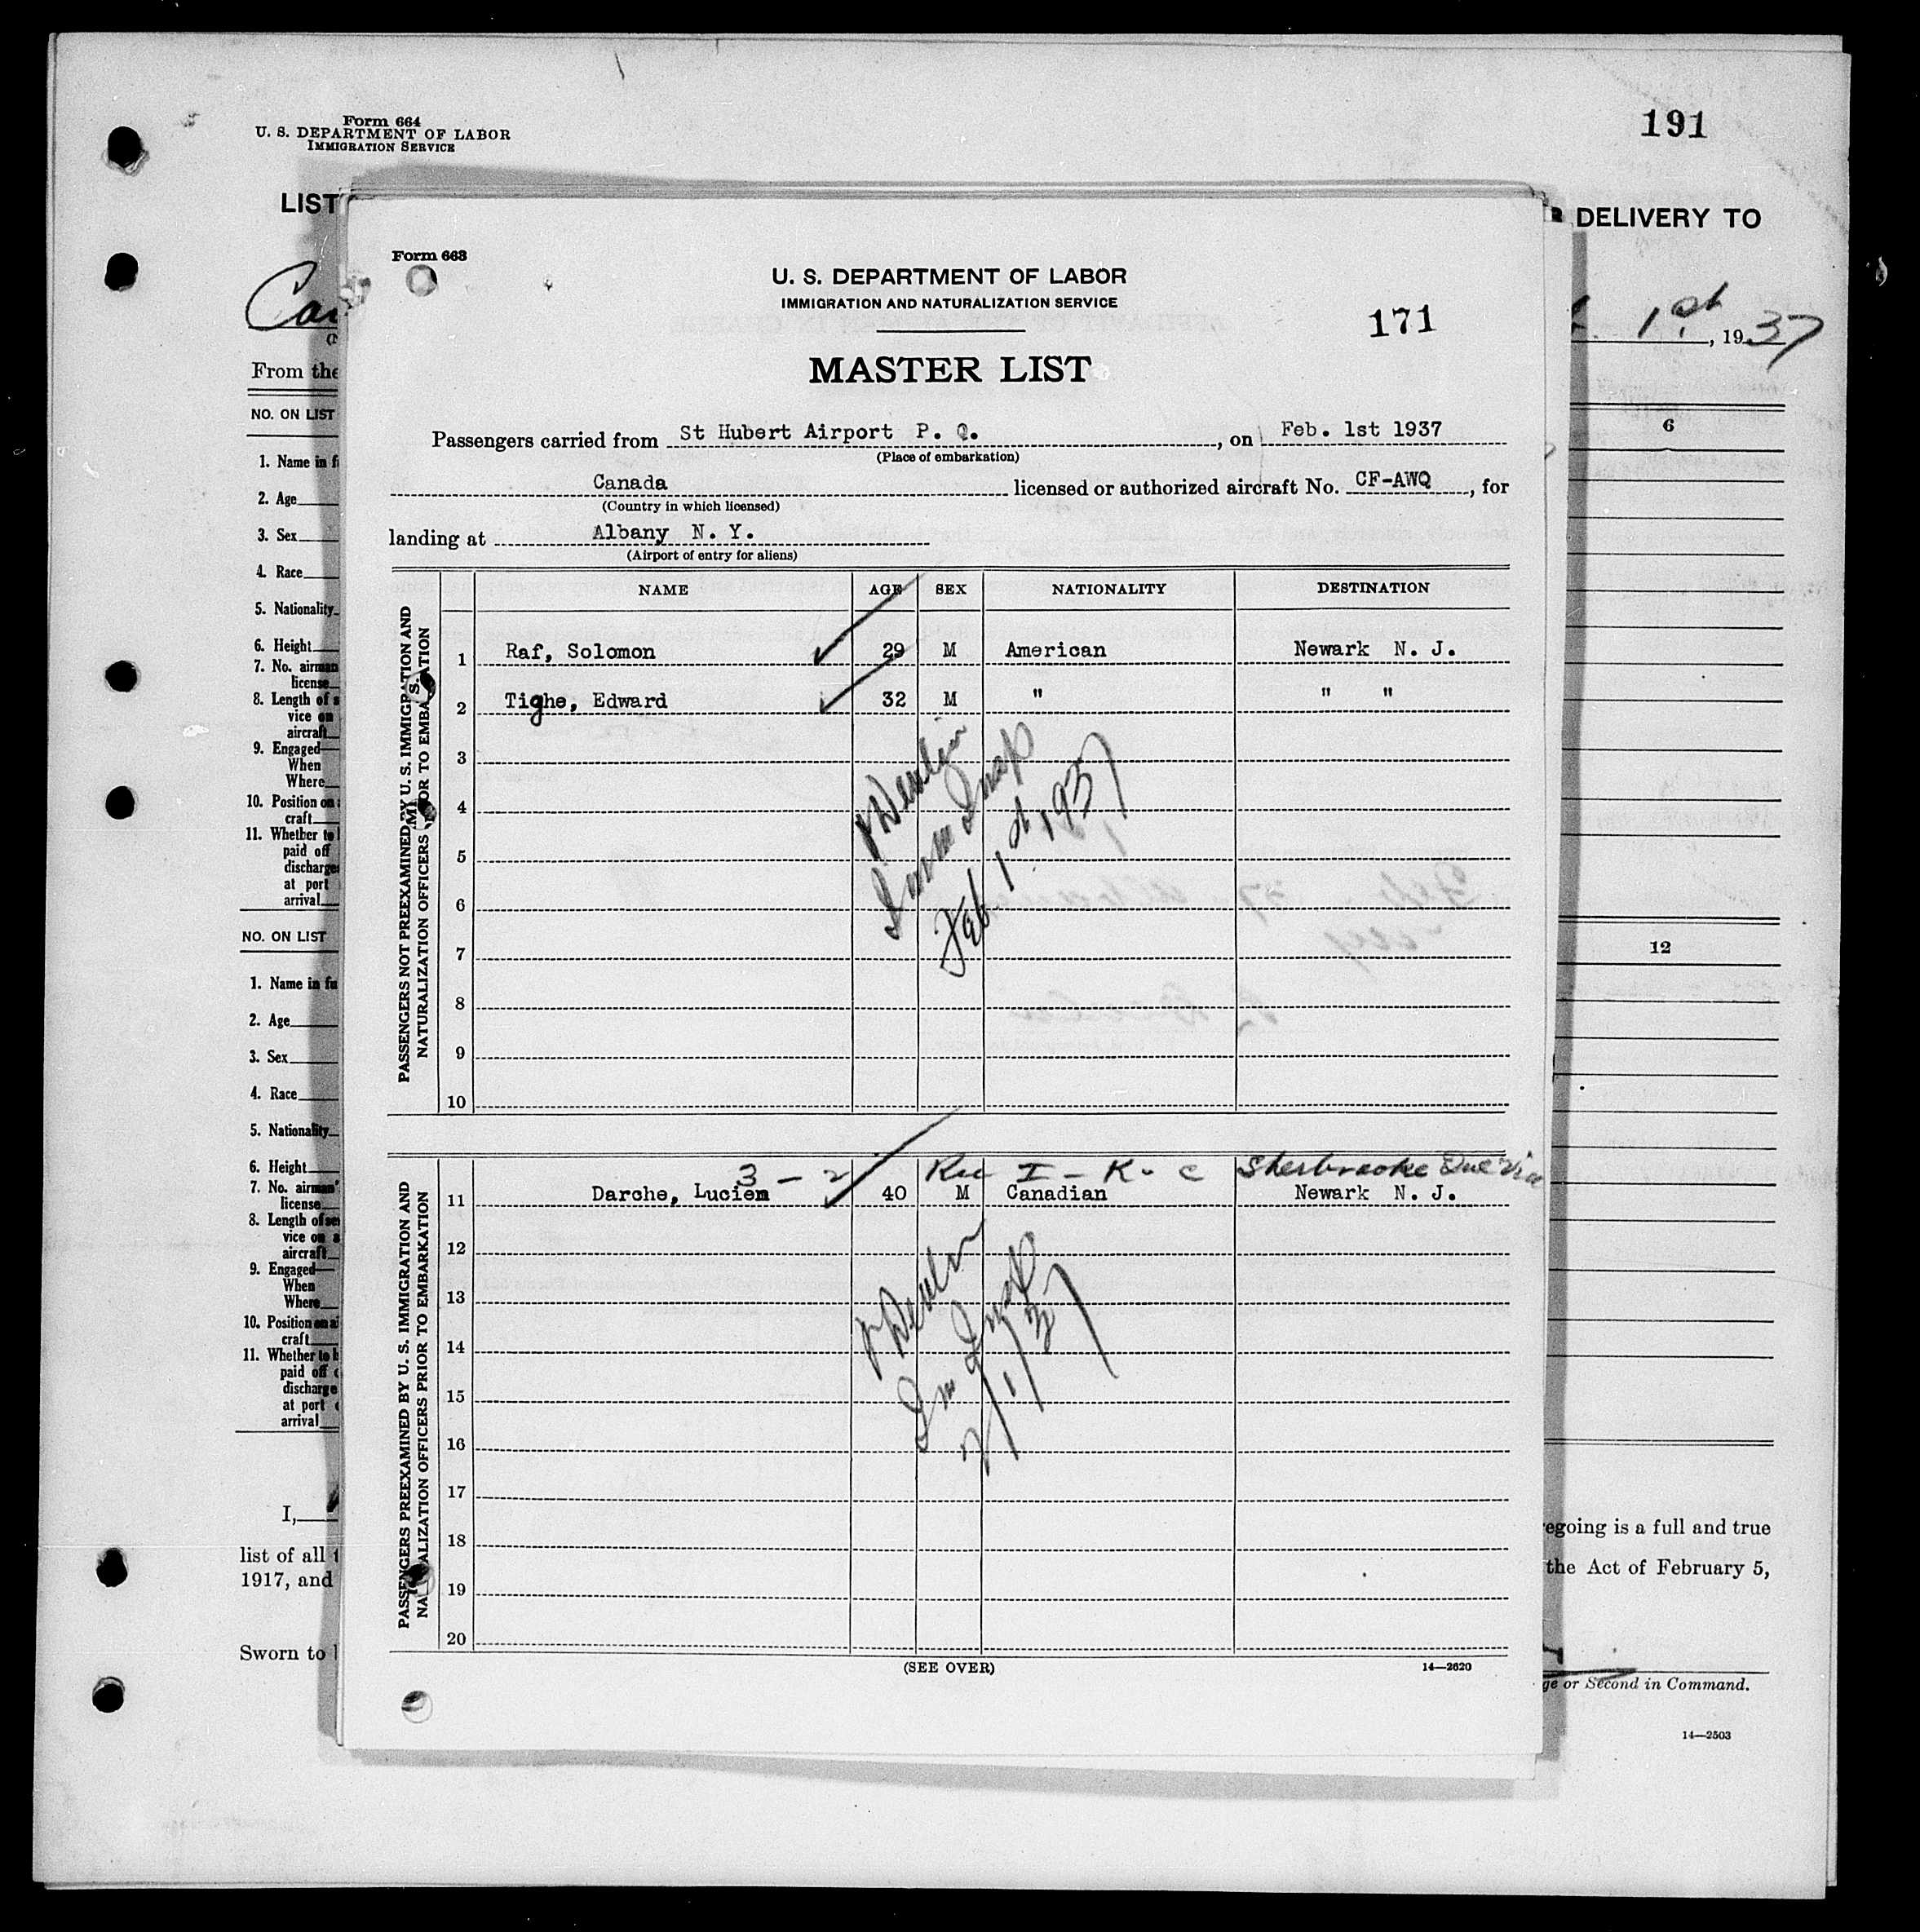 Form 664
U. S. DEPARTMENT OF LABOR
IMMIGRATION SERVICE
191
LIST
DELIVERY TO
1st, 1937
From the
NO. ON LIST
6
1. Name in f
2. Age
3. Sex
4. Race
5. Nationality
6. Height
7. No. airman
license
8. Length of s
vice on
aircraft
9. Engaged
When
Where
10. Position on
craft
11. Whether to
paid off
discharge
at port
arrival
NO. ON LIST
12
1. Name in fu
2. Age
3. Sex
4. Race
5. Nationality
6. Height
7. No. airman'
license
8. Length of se
vice on a
aircraft
9. Engaged
When
Where
10. Position on ai
craft
11. Whether to b
paid off
discharge
at port
arrival
I,
egoing is a full and true
list of all
the Act of February 5,
1917, and
Sworn to
ge or Second in Command.
14—2503
Form 663
U. S. DEPARTMENT OF LABOR
IMMIGRATION AND NATURALIZATION SERVICE
171
MASTER LIST
Passengers carried from St Hubert Airport P. Q., on Feb. 1st 1937
(Place of embarkation)
Canada licensed or authorized aircraft No. CF-AWQ, for
(Country in which licensed)
landing at Albany N. Y.
(Airport of entry for aliens)
NAME AGE SEX NATIONALITY DESTINATION
PASSENGERS NOT PREEXAMINED BY U. S. IMMIGRATION AND
NATURALIZATION OFFICERS PRIOR TO EMBARKATION
1 Raf, Solomon 29 M American Newark N. J.
2 Tighe, Edward 32 M " " "
3
4
5
6
7
8
9
10
Devlin
Imm Insp
Feb. 1st 1937
PASSENGERS PREEXAMINED BY U. S. IMMIGRATION AND
NATURALIZATION OFFICERS PRIOR TO EMBARKATION
3 - 2 Rec I - K - C Sherbrooke Que Via
11 Darche, Lucien 40 M Canadian Newark N. J.
12
13
14
15
16
17
18
19
20
Devlin
Im Insp
2/1/37
(SEE OVER)
14—2620